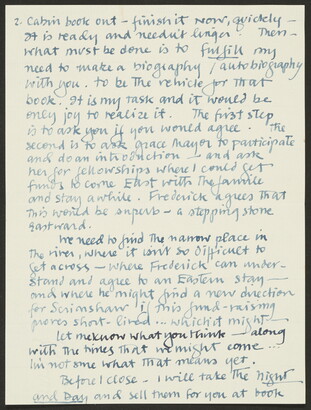 2. Cabin book out - finish it now, quickly -
It is ready and needn't linger. Then -
what must be done is to fulfill my
need to make a biography / autobiography
with you. To be the vehicle for that
book. It is my task and it would be
only joy to realize it. The first step
is to ask you if you would agree. The
second is to ask Grace Mayor to participate
and do an introduction - and ask
her for fellowships where I could get
funds to come East with the familie
and stay awhile. Frederick agrees that
this would be superb - a stepping stone
Eastward.
We need to find the narrow place in
the river, where it isn't so difficult to
get across - where Frederick can under-
stand and agree to an Eastern stay -
and where he might find a new direction
for Scrimshaw if this fund-raising
proves short-lived ... which it might -
let me know what you think - along
with the times that we might come ...
I'm not sure what that means yet.
Before I close - I will take the Night
and Day and sell them for you at book